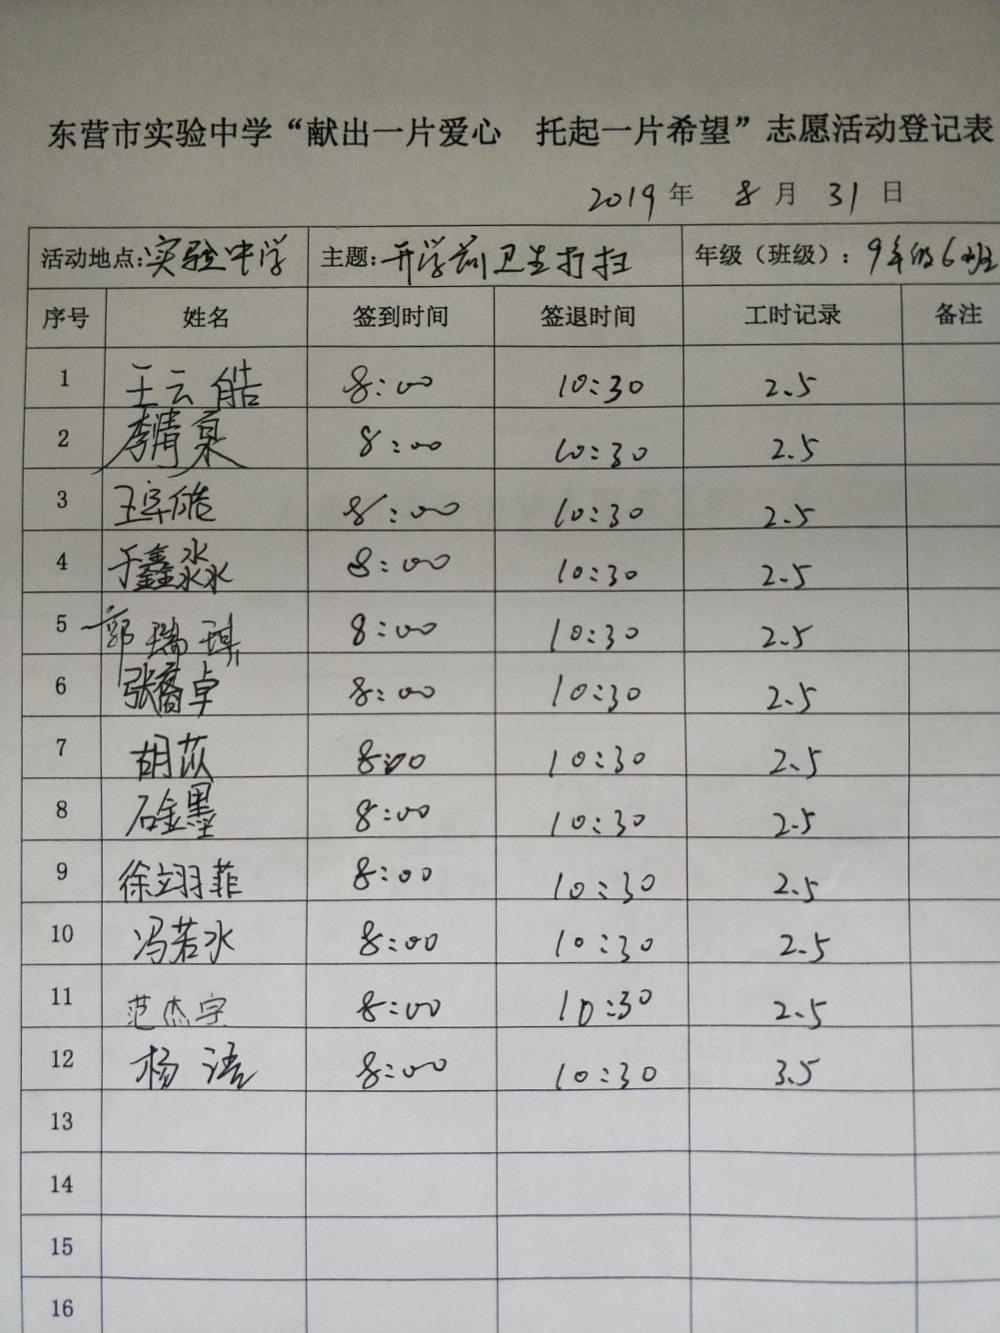 东营市实验中学“献出一片爱心 托起一片希望”志愿活动登记表
2019年 8月 31日
活动地点:实验中学 主题:开学前卫生打扫 年级（班级）:9年级6班
序号 姓名 签到时间 签退时间 工时记录 备注
1 王云皓 8:00 10:30 2.5
2 李清泉 8:00 10:30 2.5
3 王宇皓 8:00 10:30 2.5
4 于鑫淼 8:00 10:30 2.5
5 郭瑞琪 8:00 10:30 2.5
6 张 卓 8:00 10:30 2.5
7 胡苡 8:00 10:30 2.5
8 石金墨 8:00 10:30 2.5
9 徐翊菲 8:00 10:30 2.5
10 冯若水 8:00 10:30 2.5
11 范杰宇 8:00 10:30 2.5
12 杨 8:00 10:30 3.5
13
14
15
16